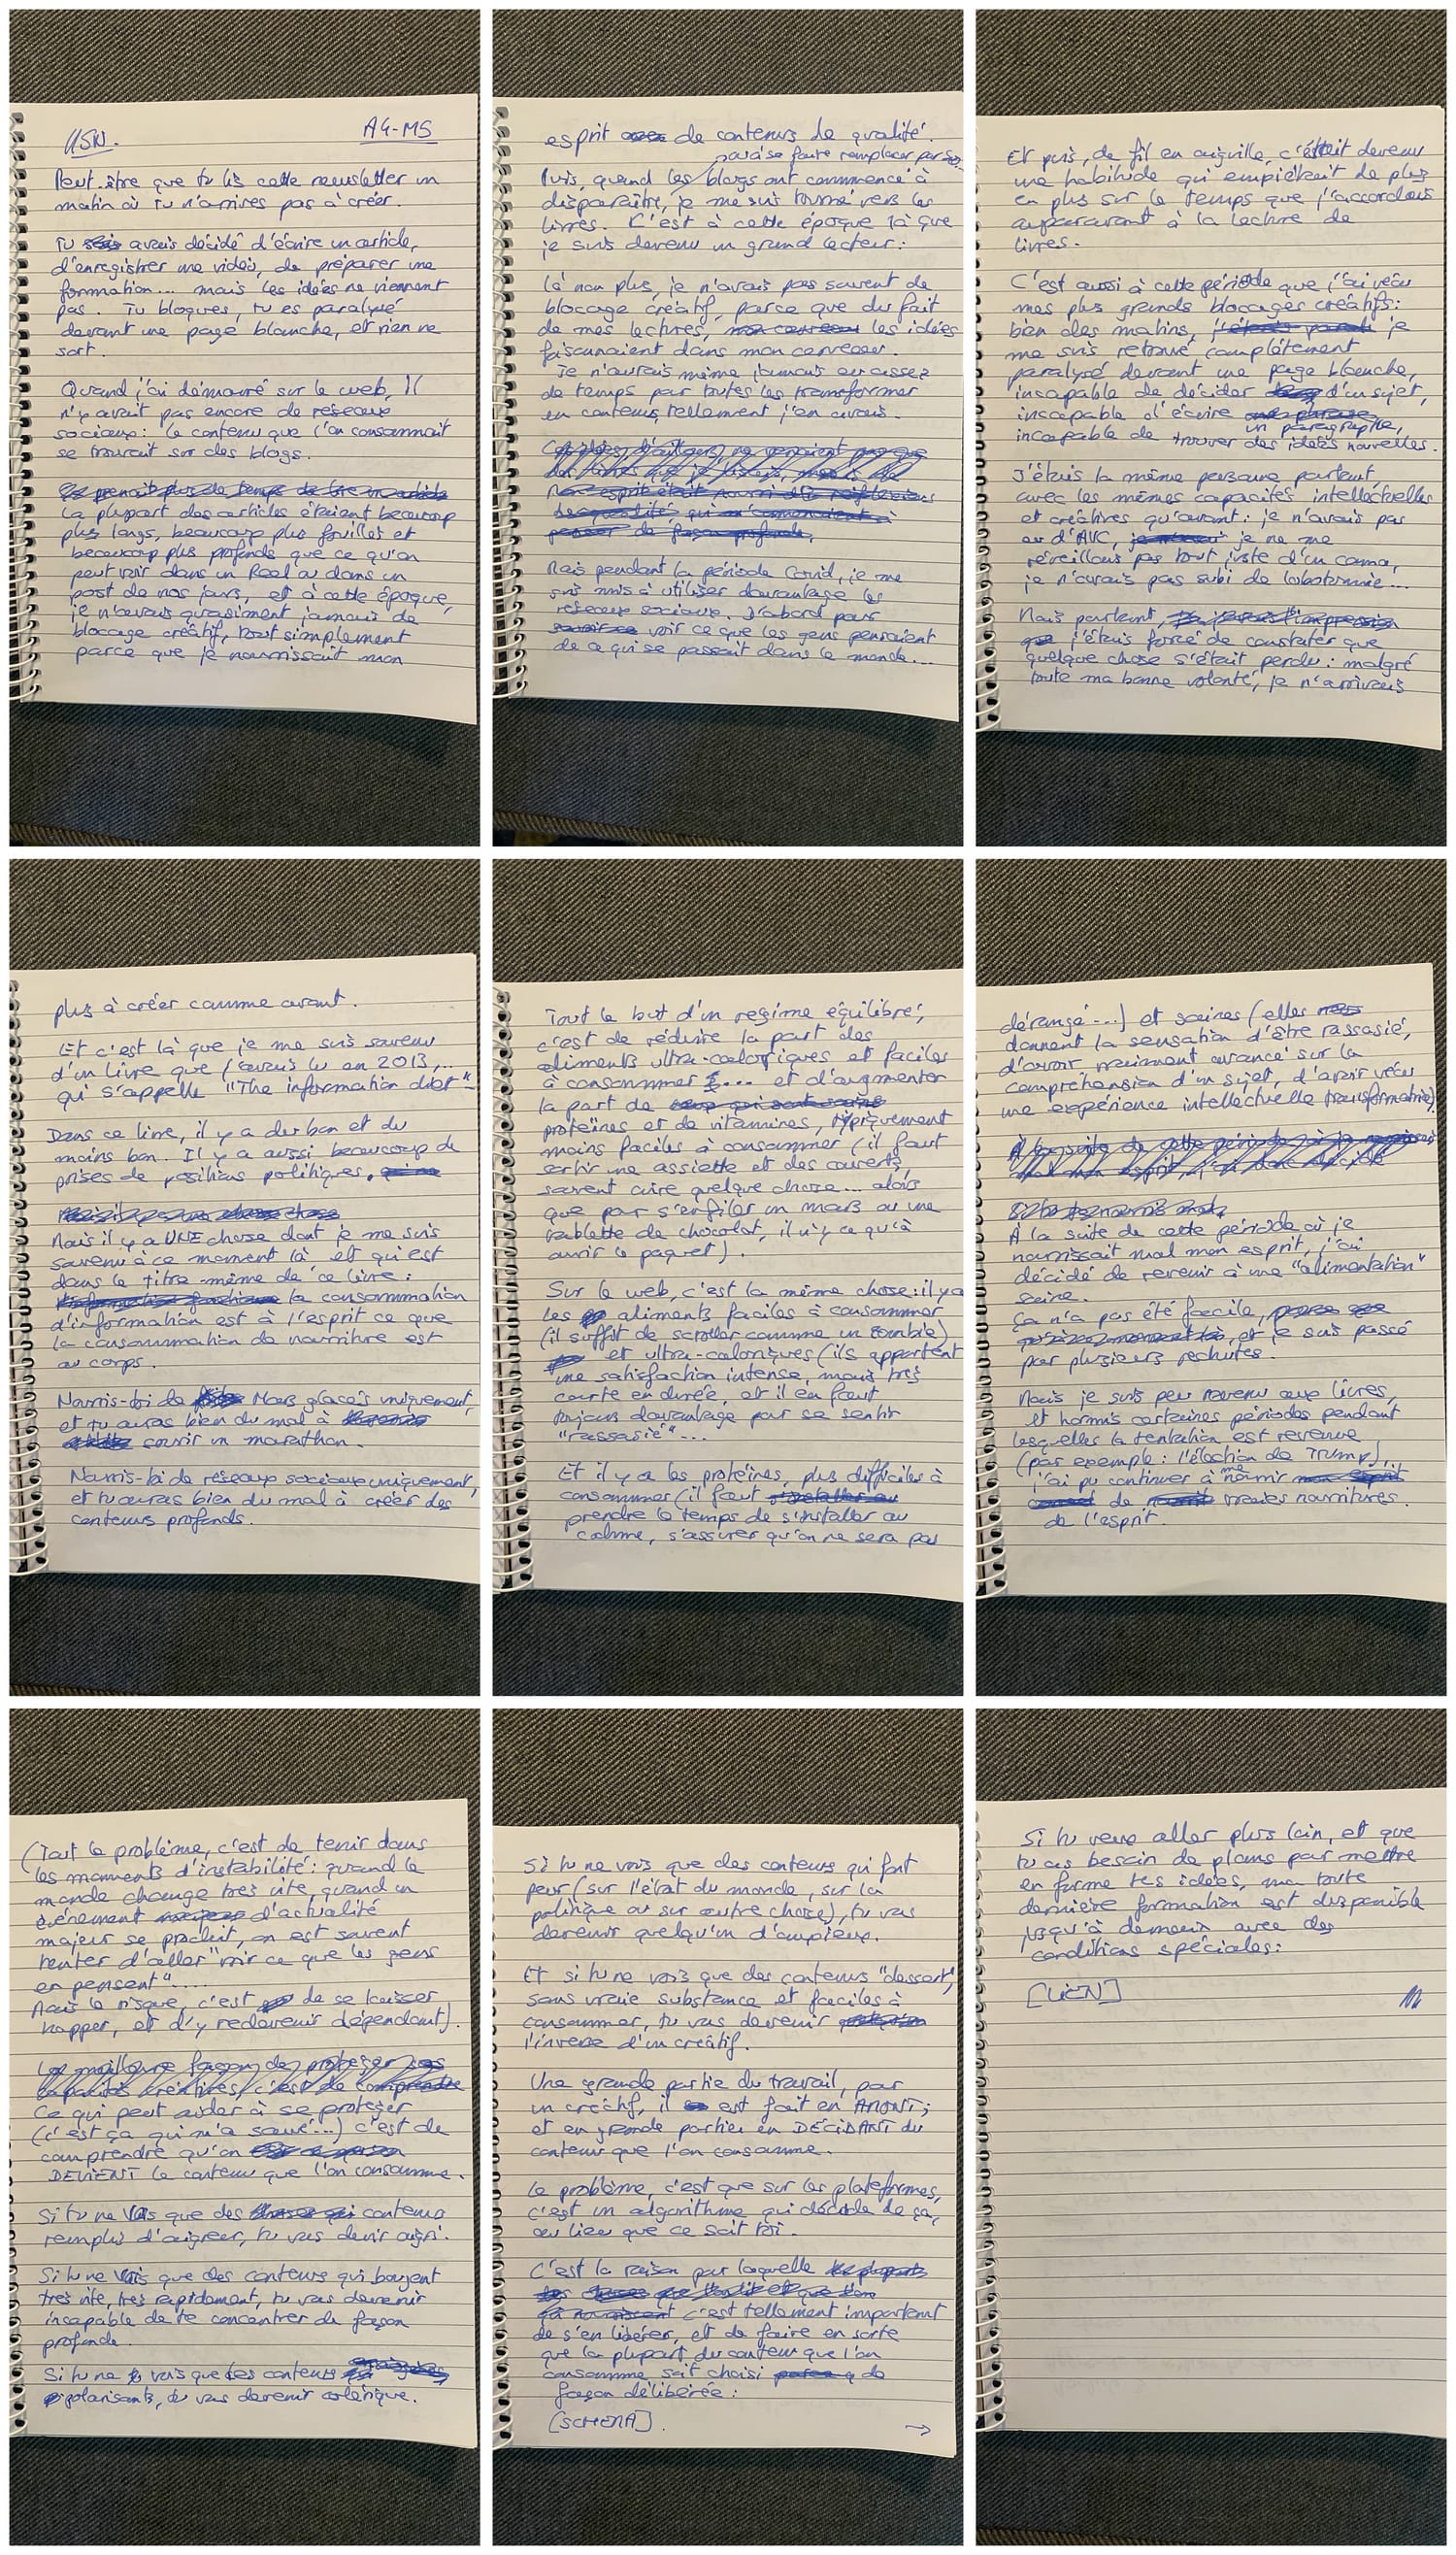 USN.
A4-M5
Peut-être que tu lis cette newsletter un
matin où tu n'arrives pas à créer.
Tu avais décidé d'écrire un article,
d'enregistrer une vidéo, de préparer une
formation... mais les idées ne viennent
pas. Tu bloques, tu es paralysé
devant une page blanche, et rien ne
sort.
Quand j'ai démarré sur le web, il
n'y avait pas encore de réseaux
sociaux: le contenu que l'on consommait
se trouvait sur des blogs.
La plupart des articles étaient beaucoup
plus longs, beaucoup plus fouillés et
beaucoup plus profonds que ce qu'on
peut voir dans un Reel ou dans un
post de nos jours, et à cette époque,
je n'avais quasiment jamais de
blocage créatif, tout simplement
parce que je nourrissait mon
esprit de contenus de qualité.
Puis, quand les blogs ont commencé à
disparaître, je me suis tourné vers les
livres. C'est à cette époque là que
je suis devenu un grand lecteur:
Là non plus, je n'avais pas souvent de
blocage créatif, parce que du fait
de mes lectures, les idées
foisonnaient dans mon cerveau.
Je n'aurais même jamais eu assez
de temps pour toutes les transformer
en contenus, tellement j'en avais.
Mais pendant la période Covid, je me
suis mis à utiliser davantage les
réseaux sociaux. D'abord pour
voir ce que les gens pensaient
de ce qui se passait dans le monde...
Et puis, de fil en aiguille, c'était devenu
une habitude qui empiétait de plus
en plus sur le temps que j'accordais
auparavant à la lecture de
livres.
C'est aussi à cette période que j'ai vécu
mes plus grands bloccages créatifs:
bien des matins, je
me suis retrouvé complètement
paralysé devant une page blanche,
incapable de décider d'un sujet,
incapable d'écrire
un paragraphe,
incapable de trouver des idées nouvelles.
J'étais la même personne pourtant,
avec les mêmes capacités intellectuelles
et créatives qu'avant: je n'avais pas
eu d'AVC, je ne me
réveillais pas tout juste d'un coma,
je n'avais pas subi de lobotomie...
Mais pourtant,
j'étais forcé de constater que
quelque chose s'était perdu: malgré
toute ma bonne volonté, je n'arrivais
plus à créer comme avant.
Et c'est là que je me suis souvenu
d'un livre que j'avais lu en 2013,...
qui s'appelle "The information diet"
Dans ce livre, il y a du bon et du
moins bon. Il y a aussi beaucoup de
prises de positions politiques.
Mais il y a UNE chose dont je me suis
souvenu à ce moment là et qui est
dans le titre même de ce livre:
la consommation
d'information est à l'esprit ce que
la consommation de nourriture est
au corps.
Nourris-toi de Mars glacés uniquement,
et tu auras bien du mal à
courir un marathon.
Nourris-toi de réseaux sociaux uniquement,
et tu auras bien du mal à créer des
contenus profonds.
Tout le but d'un régime équilibré,
c'est de réduire la part des
aliments ultra-caloriques et faciles
à consommer ... et d'augmenter
la part de
protéines et de vitamines, typiquement
moins faciles à consommer (il faut
sortir une assiette et des couverts,
souvent cuire quelque chose... alors
que pour s'enfiler un mars ou une
tablette de chocolat, il n'y ce qu'à
ouvrir le paquet).
Sur le web, c'est la même chose: il y a
les aliments faciles à consommer
(il suffit de scroller comme un zombie)
et ultra-caloriques (ils apportent
une satisfaction intense, mais très
courte en durée, et il en faut
toujours davantage pour se sentir
"rassasié"...
Et il y a les protéines, plus difficiles à
consommer (il faut
prendre le temps de s'installer au
calme, s'assurer qu'on ne sera pas
dérangé...) et saines (elles
donnent la sensation d'être rassasié,
d'avoir vraiment avancé sur la
compréhension d'un sujet, d'avoir vécu
une expérience intellectuelle transformatrice)
À la suite de cette période où je
nourrissait mal mon esprit, j'ai
décidé de revenir à une "alimentation"
saine.
ça n'a pas été facile,
et je suis passé
par plusieurs rechutes.
Mais je suis peu revenu aux livres,
et hormis certaines périodes pendant
lesquelles la tentation est revenue
(par exemple: l'élection de Trump),
j'ai pu continuer à me nourrir
de vraies nourritures
de l'esprit.
(Tout le problème, c'est de tenir dans
les moments d'instabilité: quand le
monde change très vite, quand un
événement d'actualité
majeur se produit, on est souvent
tenter d'aller "voir ce que les gens
en pensent"....
Mais le risque, c'est de se laisser
happer, et d'y redevenir dépendant).
Ce qui peut aider à se protéger
(c'est ça qui m'a sauvé...) c'est de
comprendre qu'on
DEVIENT le contenu que l'on consomme.
Si tu ne vois que des contenus
remplis d'aigreur, tu vas devenir aigri.
Si tu ne vois que des contenus qui bougent
très vite, très rapidement, tu vas devenir
incapable de te concentrer de façon
profonde.
Si tu ne vois que des contenus
polarisants, tu vas devenir colérique.
Si tu ne vois que des contenus qui font
peur (sur l'état du monde, sur la
politique ou sur autre chose), tu vas
devenir quelqu'un d'anxieux.
Et si tu ne vois que des contenus "dessert",
sans vraie substance et faciles à
consommer, tu vas devenir
l'inverse d'un créatif.
Une grande partie du travail, pour
un créatif, il est fait en AMONT;
et en grande partie en DÉCIDANT du
contenu que l'on consomme.
Le problème, c'est que sur les plateformes,
c'est un algorithme qui décide de ça,
au lieu que ce soit toi.
C'est la raison pour laquelle
c'est tellement important
de s'en libérer, et de faire en sorte
que la plupart du contenu que l'on
consomme soit choisi de
façon délibérée:
[SCHEMA].
→
Si tu veux aller plus loin, et que
tu as besoin de plans pour mettre
en forme tes idées, ma toute
dernière formation est disponible
jusqu'à demain avec des
conditions spéciales:
[LIEN]